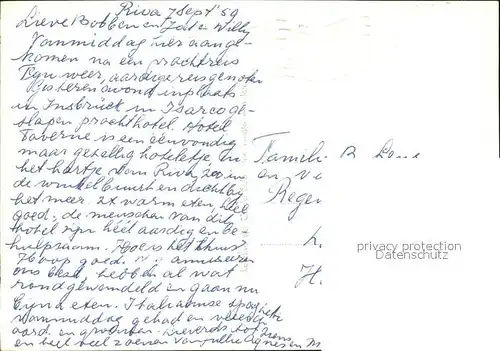 Riva 7 Sept '59
Lieve Bobben en Joh en Willy
Vanmiddag hier aange-
komen na een prachtreis
Fijn weer, aardige reisgenoten
Gisteren avond in plaats
van Innsbrück in Isarco ge-
slapen prachthotel. Hotel
Taverne is een eenvoudig
maar gezellig hoteletje. In
het hartje van Riva, zoo in
de winkelbuurt en dichtby
het meer. 2x warm eten heel
goed; de menschen van dit
hotel zyn héél aardig en be-
hulpzaam. Hoe is het thuis
Hoop goed. Wy amuseeren
ons best, hebben al wat
rondgewandeld en gaan nu
fyn eten. Italiaanse spaghetti
vanmiddag gehad en vleesch
aard. en groenten. Lieverds tot ziens
en heel veel zoenen van jullie Agnes en M
Famili B
en
Regen
H.
privacy protection
Datenschutz